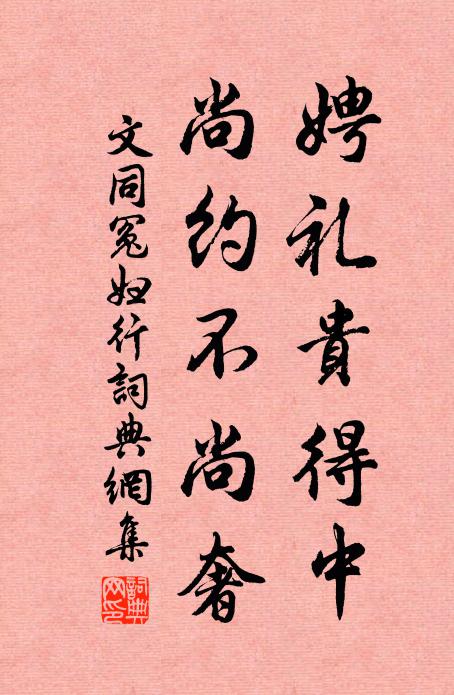 娉礼貴得中
尚约不尚奢
文同冤妇行詞典網集
詞典网印